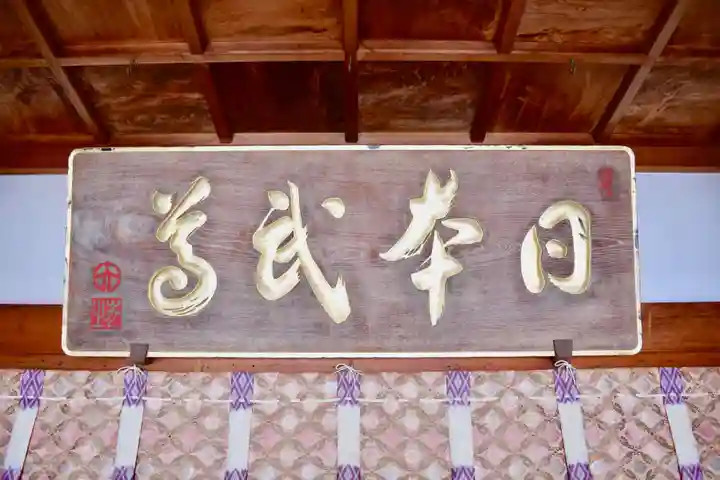 日本武尊